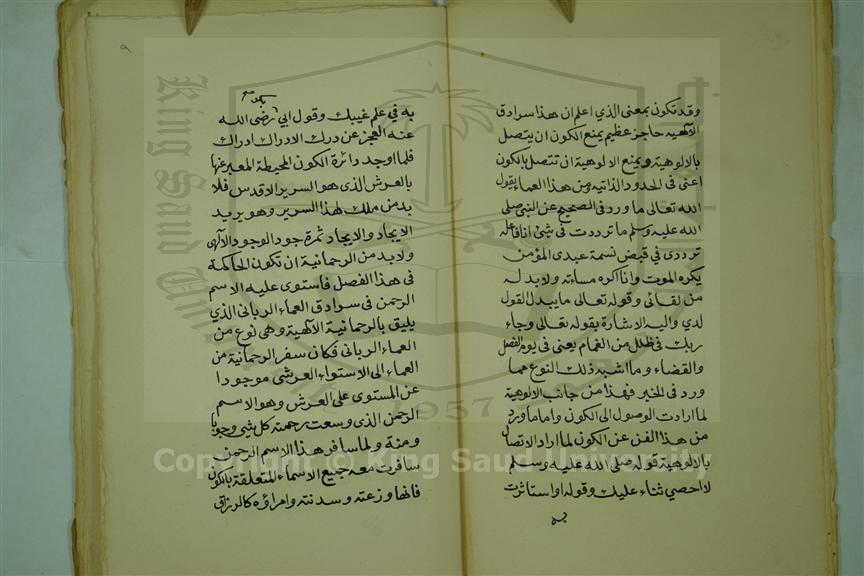 وقد تكون بمعنى الذي اعلم ان هذا سرادق
الآلهية حاجز عظيم يمنع الكون ان يتصل
بالالوهية ويمنع الالوهية ان تتصل بالكون
اعنى في الحدود الذاتيه ومن هذا العماء يقول
الله تعالى ما ورد في الصحيح عن النبي صلى
الله عليه وسلم ما ترددت في شئ انا فاعله
ترددي في قبض نسمة عبدى المؤمن
يكره الموت وانا اكره مساءته ولا بد له
من لقائى وقوله تعالى ما يبدل القول
لدي واليه الاشارة بقوله تعالى وجاء
ربك في ظلل من الغمام يعنى في يوم الفصل
والقضاء وما اشبه ذلك النوع مما
ورد في الخبر فهذا من جانب الالوهية
لما ارادت الوصول الى الكون واما ما ورد
من هذا الفن عن الكون لما اراد الاتصال
بالالوهية قوله صلى الله عليه وسلم
لا احصي ثناء عليك وقوله او استاثرت
به
٩
به في علم غيبك وقول ابي بكر رضى الله
عنه العجز عن درك الادراك ادراك
فلما اوجد دائرة الكون المحيطة المعبر عنها
بالعرش الذى هو السرير الاقدس فلا
بد من ملك لهذا السرير وهو يريد
الايجاد والايجاد ثمرة جود الوجود الآلهى
ولا بد من الرحمانية ان تكون الحاكمة
فى هذا الفصل فاستوى عليه الاسم
الرحمن في سرادق العماء الربانى الذي
يليق بالرحمانية الآلهية وهى نوع من
العماء الربانى فكان سفر الرحمانية من
العماء الى الاستواء العرشى موجودا
عن المستوى على العرش وهو الاسم
الرحمن الذى وسعت رحمته كل شئ وجوبا
ومنة ولما سافر هذا الاسم الرحمن
سافرت معه جميع الاسماء المتعلقة بالكون
فانها وزعته وسدنته وامراؤه كالرزاق
King Saud University
1957
Copyright © King Saud University